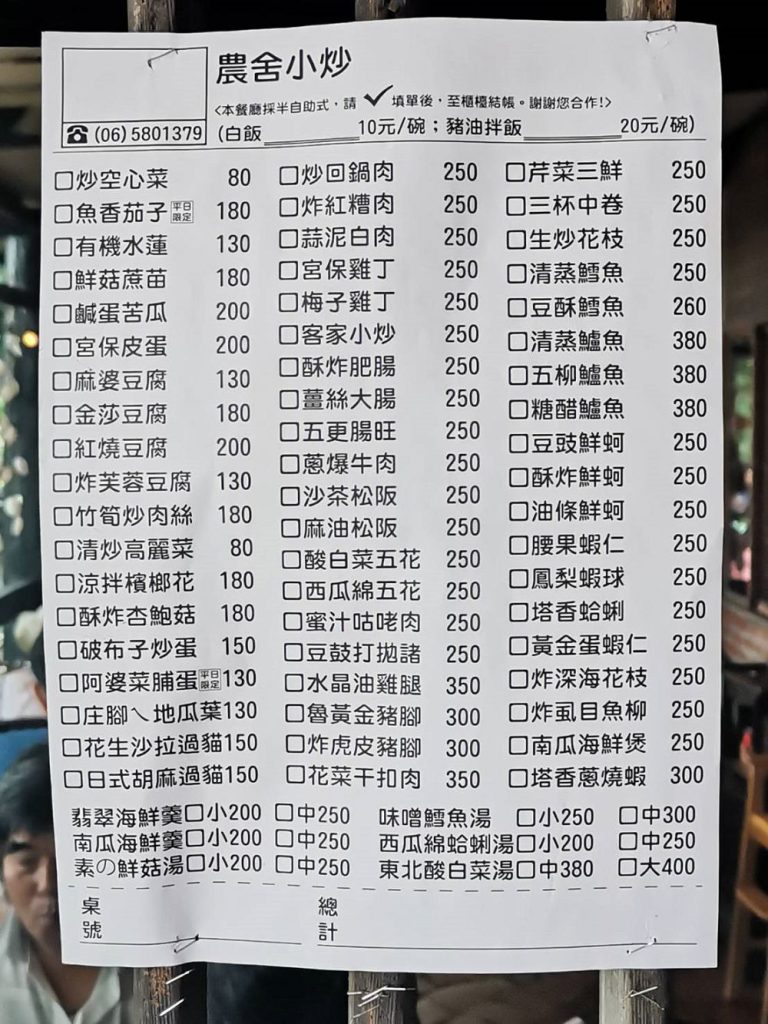 農舍小炒
<本餐廳採半自助式，請✓填單後，至櫃檯結帳。謝謝您合作!>
☎(06)5801379
(白飯______10元/碗；豬油拌飯______20元/碗)
□炒空心菜 80
□魚香茄子平日限定 180
□有機水蓮 130
□鮮菇蔗苗 180
□鹹蛋苦瓜 200
□宮保皮蛋 200
□麻婆豆腐 130
□金莎豆腐 180
□紅燒豆腐 200
□炸芙蓉豆腐 130
□竹筍炒肉絲 180
□清炒高麗菜 80
□涼拌檳榔花 180
□酥炸杏鮑菇 180
□破布子炒蛋 150
□阿婆菜脯蛋平日限定130
□庄腳ㄟ地瓜葉130
□花生沙拉過貓150
□日式胡麻過貓150
□炒回鍋肉 250
□炸紅糟肉 250
□蒜泥白肉 250
□宮保雞丁 250
□梅子雞丁 250
□客家小炒 250
□酥炸肥腸 250
□薑絲大腸 250
□五更腸旺 250
□蔥爆牛肉 250
□沙茶松阪 250
□麻油松阪 250
□酸白菜五花 250
□西瓜綿五花 250
□蜜汁咕咾肉 250
□豆鼓打拋諸 250
□水晶油雞腿 350
□魯黃金豬腳 300
□炸虎皮豬腳 300
□花菜干扣肉 350
□芹菜三鮮 250
□三杯中卷 250
□生炒花枝 250
□清蒸鱈魚 250
□豆酥鱈魚 260
□清蒸鱸魚 380
□五柳鱸魚 380
□糖醋鱸魚 380
□豆豉鮮蚵 250
□酥炸鮮蚵 250
□油條鮮蚵 250
□腰果蝦仁 250
□鳳梨蝦球 250
□塔香蛤蜊 250
□黃金蛋蝦仁 250
□炸深海花枝 250
□炸虱目魚柳 250
□南瓜海鮮煲 250
□塔香蔥燒蝦 300
翡翠海鮮羹□小200 □中250
南瓜海鮮羹□小200 □中250
素の鮮菇湯□小200 □中250
味噌鱈魚湯 □小250 □中300
西瓜綿蛤蜊湯□小200 □中250
東北酸白菜湯□中380 □大400
桌號
總計